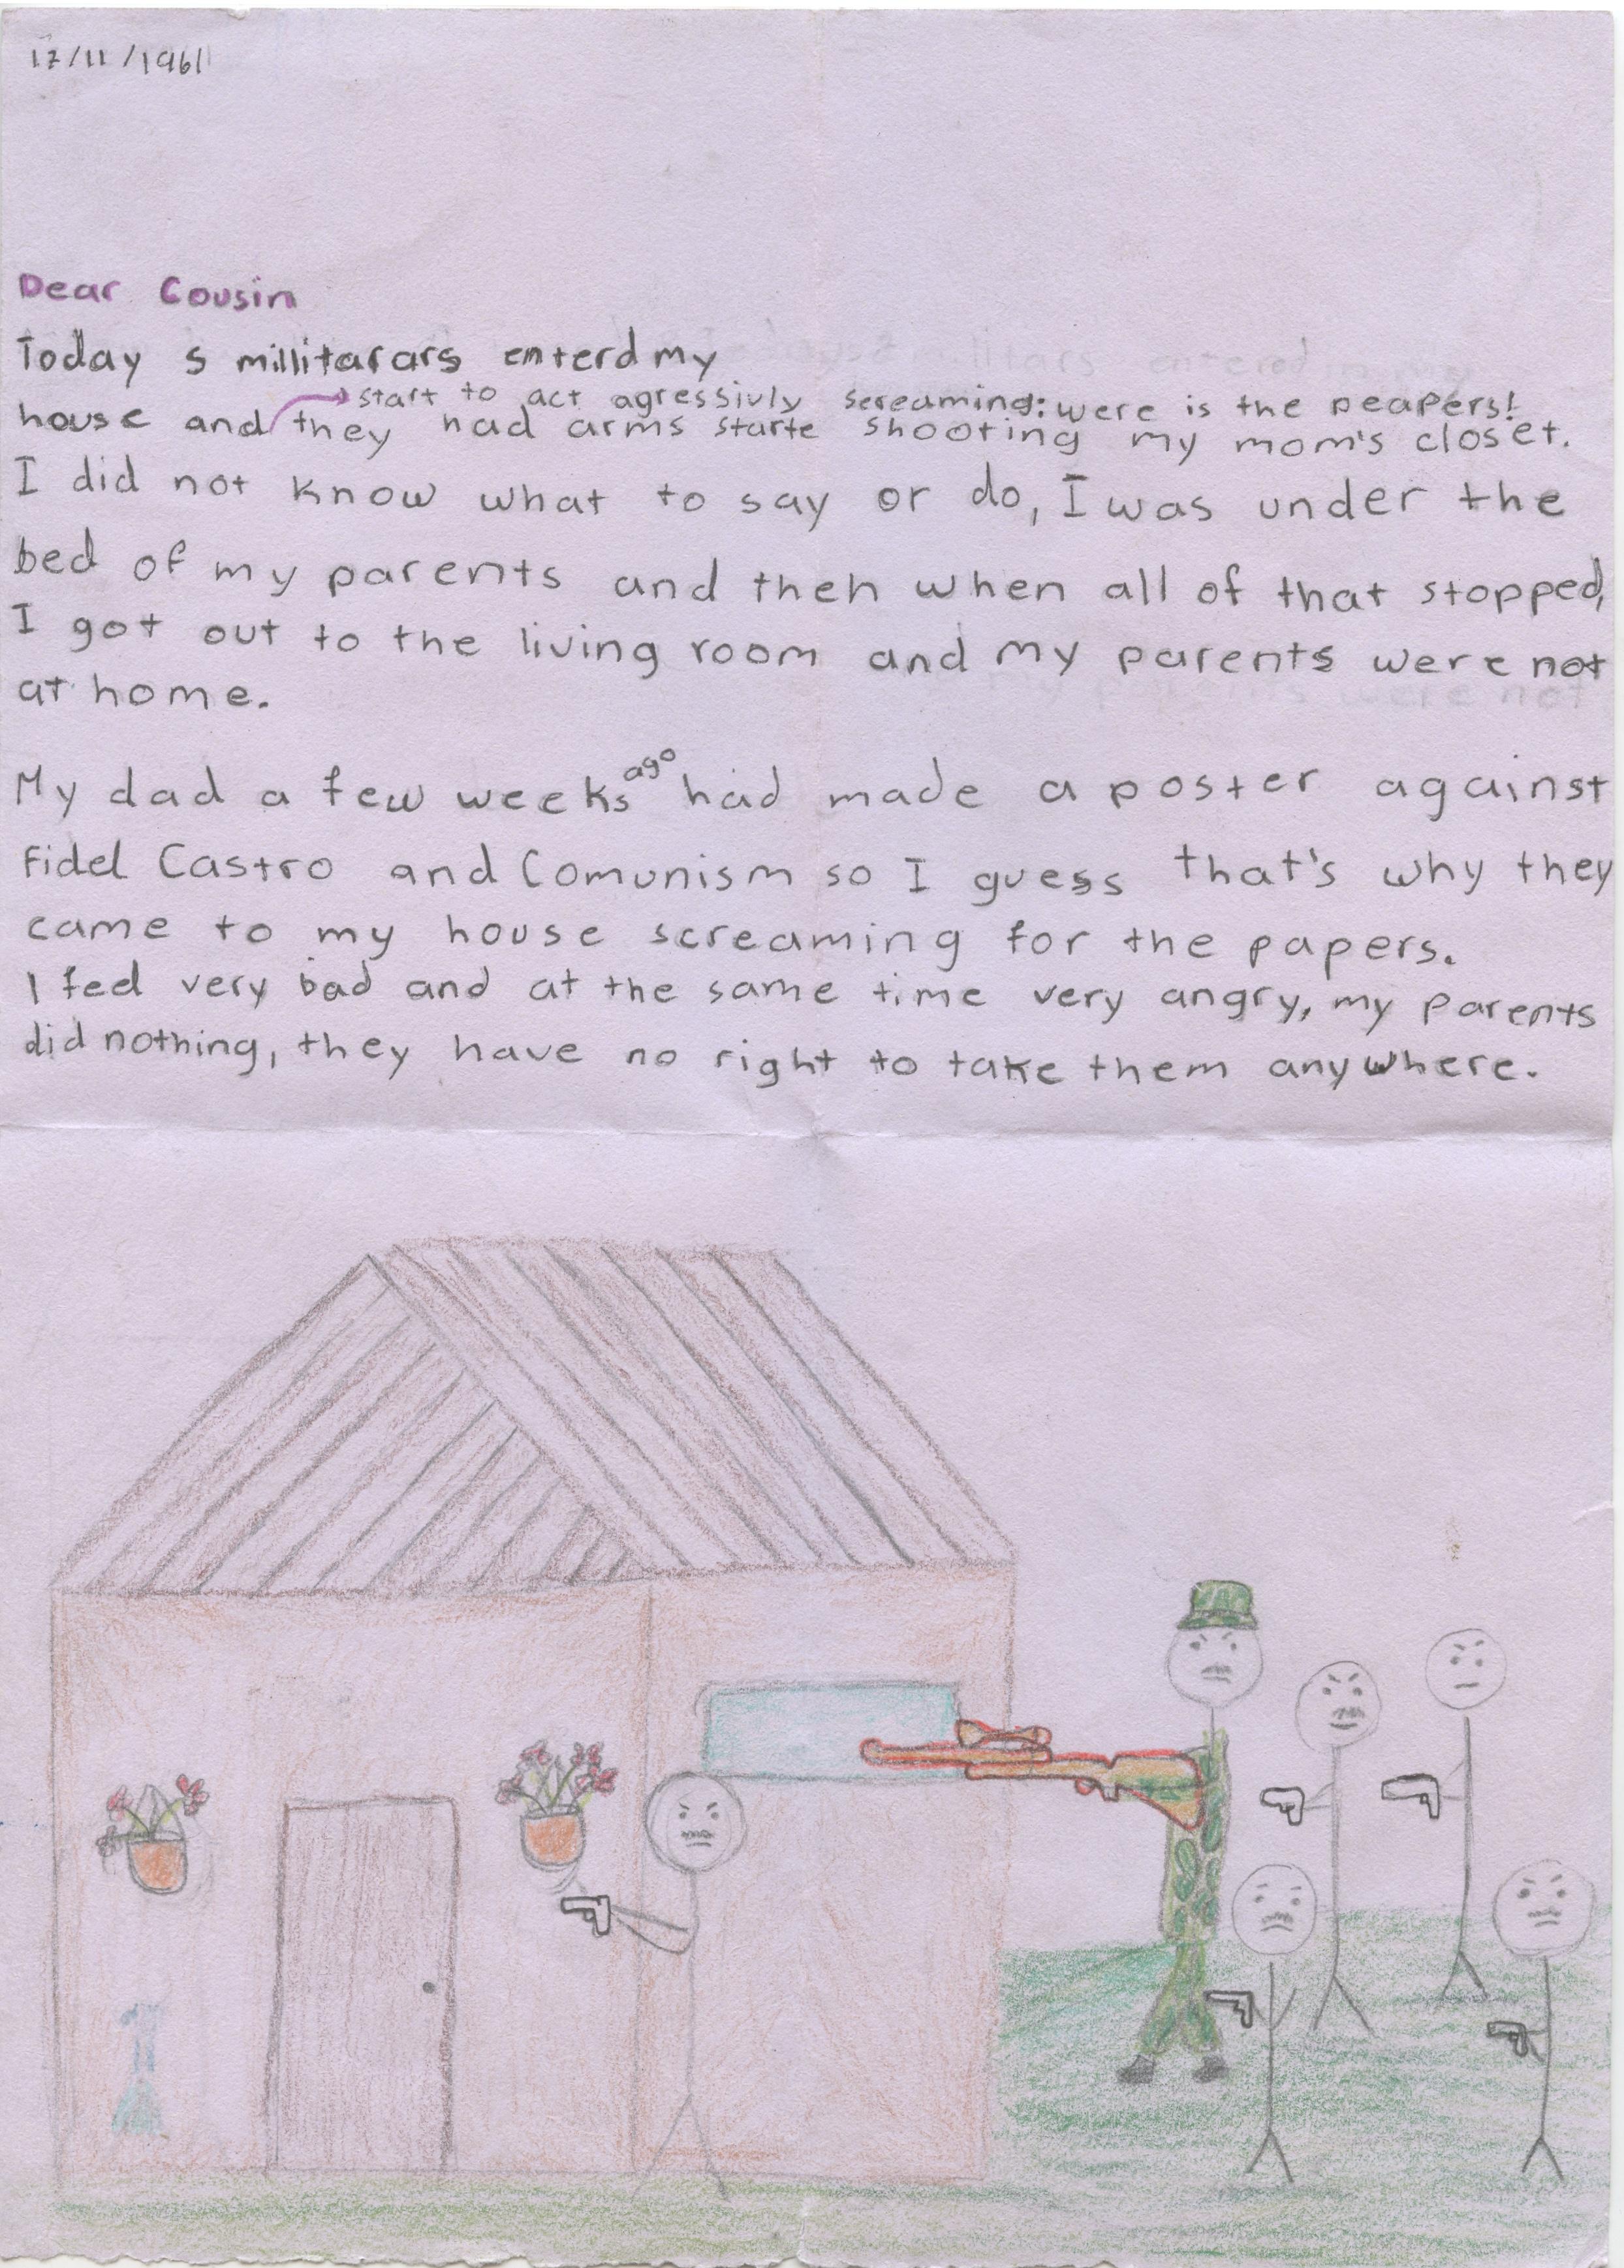 17/11/1961
Dear Cousin
Today 5 millitarars enterd my
start to act agressivly screaming: were is the peapers!
house and they had arms starte shooting my mom's closet.
I did not know what to say or do, I was under the
bed of my parents and then when all of that stopped,
I got out to the living room and my parents were not
at home.
My dad a few weeks ago had made a poster against
Fidel Castro and Comunism so I guess that's why they
came to my house screaming for the papers.
I feel very bad and at the same time very angry, my parents
did nothing, they have no right to take them anywhere.